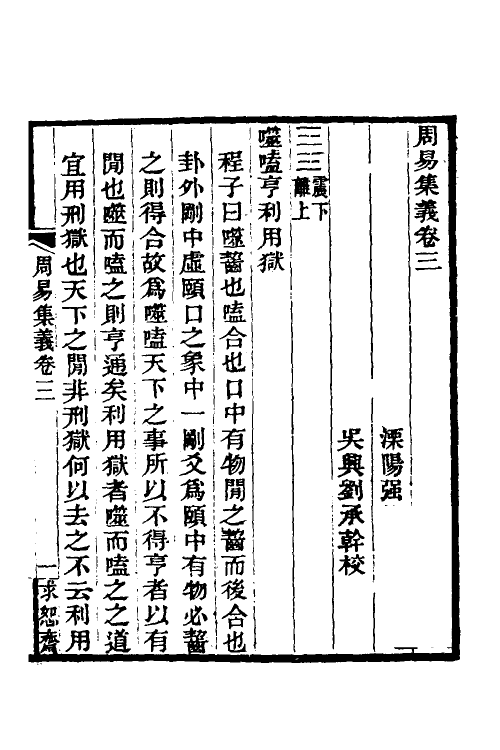 周易集義卷三
溧陽强
吳興劉承幹校
震下
離上
噬嗑亨利用獄
程子曰噬齧也嗑合也口中有物閒之齧而後合也
卦外剛中虛頤口之象中一剛爻爲頤中有物必齧
之則得合故爲噬嗑天下之事所以不得亨者以有
閒也噬而嗑之則亨通矣利用獄者噬而嗑之之道
宜用刑獄也天下之閒非刑獄何以去之不云利用
周易集義卷三
一
求恕齋